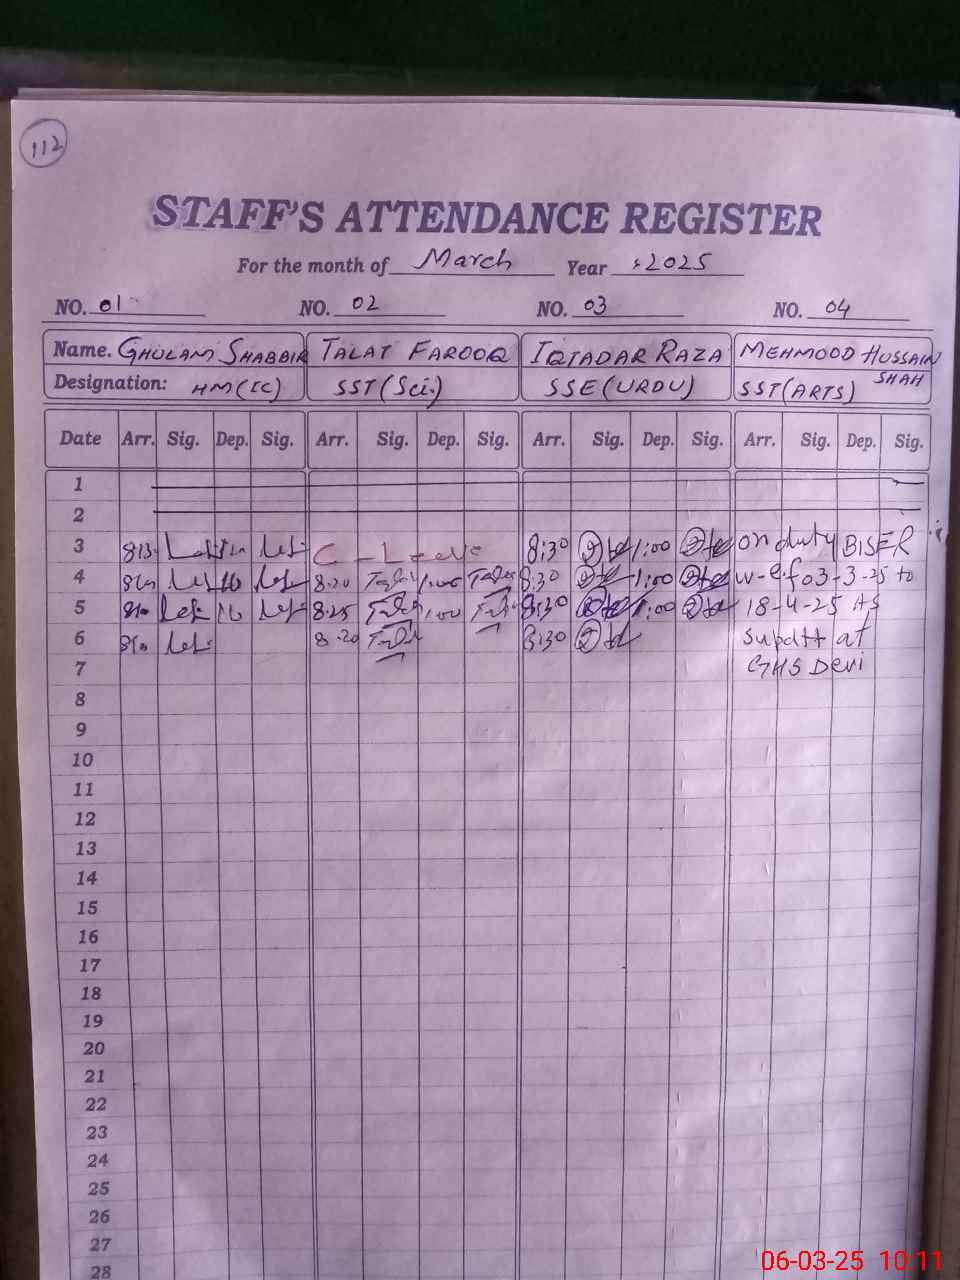 112
STAFF'S ATTENDANCE REGISTER
For the month of March Year :2025
NO. 01 NO. 02 NO. 03 NO. 04
Name. GHULAM SHABBIR TALAT FAROOQ IQTADAR RAZA MEHMOOD HUSSAIN SHAH
Designation: HM(IC) SST(Sci.) SSE(URDU) SST(ARTS)
Date Arr. Sig. Dep. Sig. Arr. Sig. Dep. Sig. Arr. Sig. Dep. Sig. Arr. Sig. Dep. Sig.
1
2
3 C-Leave 8:30 1:00 on duty BISER
4 8.20 1:00 8:30 1:00 w-e.f 03-3-25 to
5 8.25 1:00 8:30 1:00 18-4-25 As
6 8.20 8:30 Supdtt at
7 GHS Devi
8
9
10
11
12
13
14
15
16
17
18
19
20
21
22
23
24
25
26
27
28
06-03-25 10:11